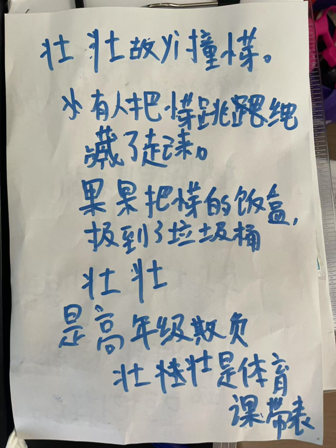 壮 壮故yi撞懞。
少有人把懞跳跟绳
藏了起来。
果果把懞的饭盒,
扱到了垃圾桶
壮 壮
是高年级欺负
壮桂壮是体育
课带表